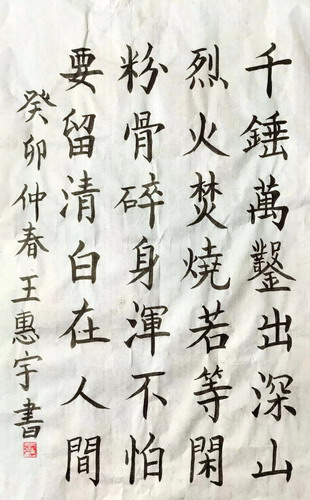 千錘萬鑿出深山
烈火焚燒若等閑
粉骨碎身渾不怕
要留清白在人間
癸卯仲春王惠宇書